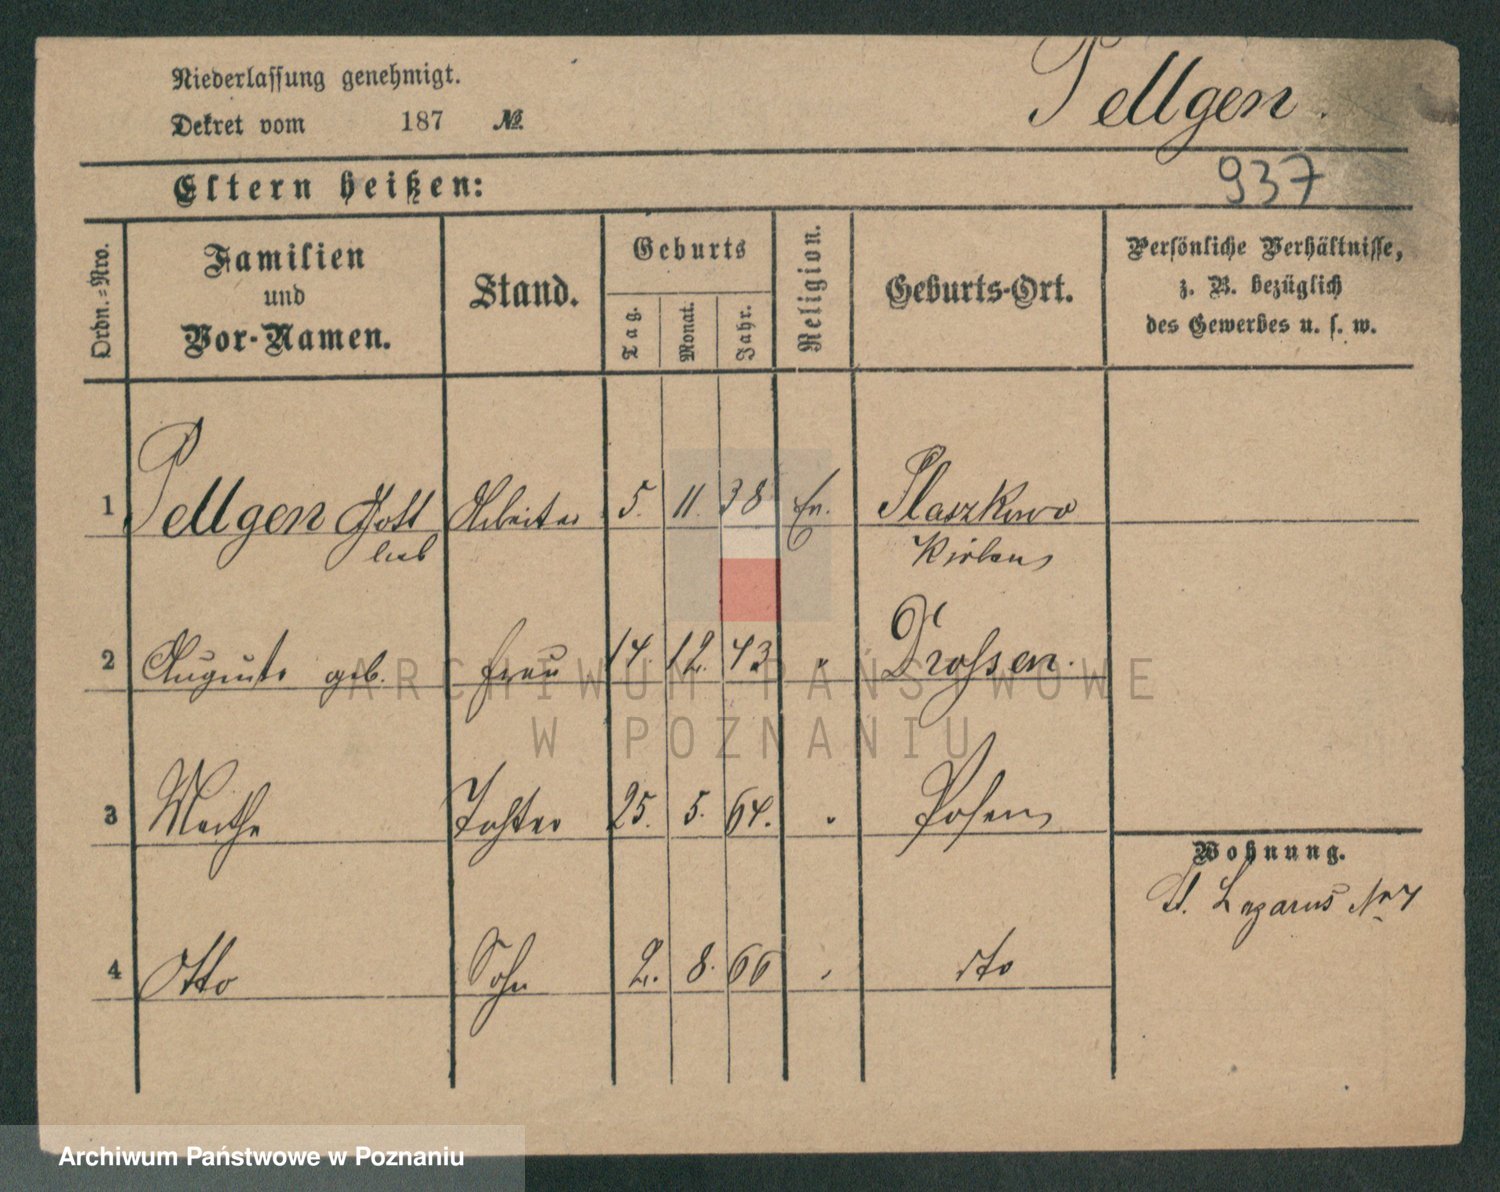 Niederlassung genehmigt.
Dekret vom 187 №.
Tellgen.
937
Eltern heißen:
Ordn.=Nro.
Familien
und
Vor-Namen.
Stand.
Geburts
Tag.
Monat.
Jahr.
Religion.
Geburts-Ort.
Persönliche Verhältnisse,
z. B. bezüglich
des Gewerbes u. s. w.
1 Tellgen Gott Arbeiter 5. 11. 38 Ev. Plaszkowo
lieb
2 Auguste geb. Frau 14. 12. 43 " Drossen.
3 Tochter 25. 5. 64. " Posen
Wohnung.
St. Lazarus No 7
4 Otto Sohn 2. 8. 66 " dto
ARCHIWUM PAŃSTWOWE
W POZNANIU
Archiwum Państwowe w Poznaniu